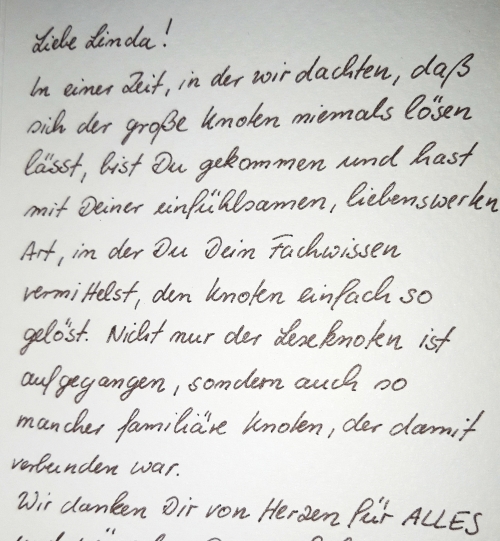 Liebe Linda!
In einer Zeit, in der wir dachten, daß
sich der große Knoten niemals lösen
lässt, bist Du gekommen und hast
mit Deiner einfühlsamen, liebenswerten
Art, in der Du Dein Fachwissen
vermittelst, den Knoten einfach so
gelöst. Nicht nur der Leseknoten ist
aufgegangen, sondern auch so
mancher familiäre Knoten, der damit
verbunden war.
Wir danken Dir von Herzen für ALLES